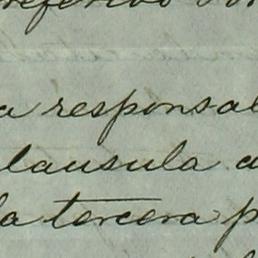 referido
a responsal
lausula a
la tercera p